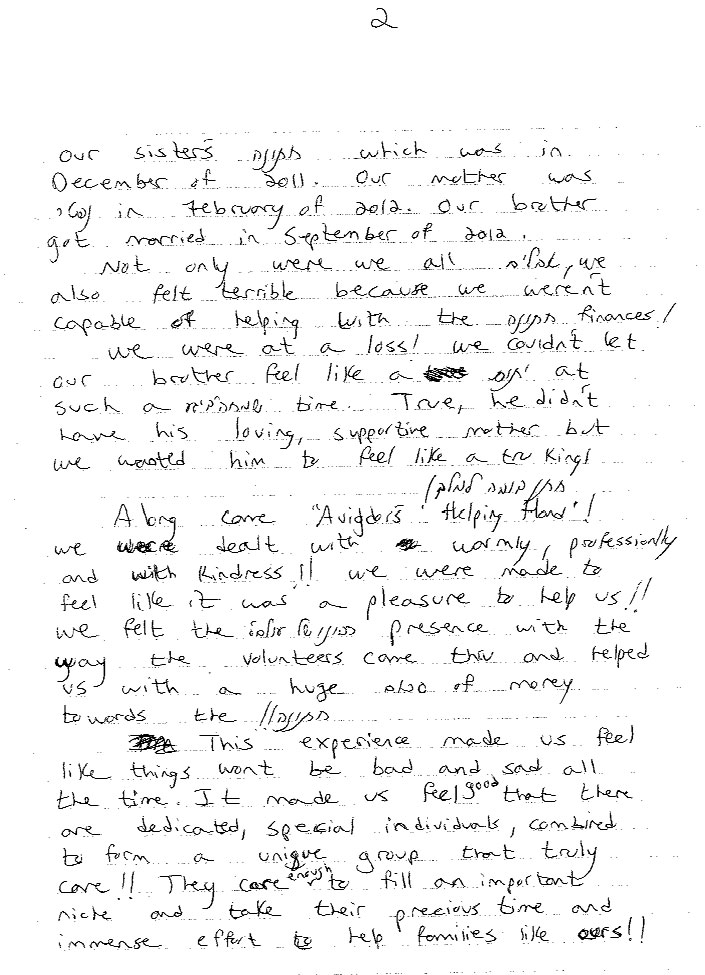 2
our sister's חתונה which was in
December of 2011. Our mother was
in February of 2012. Our brother
got married in September of 2012.
Not only were we all אבלים, we
also felt terrible because we weren't
capable of helping with the חתונה finances!
we were at a loss! we couldn't let
our brother feel like a יתום at
such a time. True, he didn't
have his loving, supportive mother but
we wanted him to feel like a tru King!
חתן דומה למלך!
Along came "Avigdor's Helping Hand"!
we were dealt with warmly, professionally
and with kindness!! we were made to
feel like it was a pleasure to help us!!
we felt the presence with the
way the volunteers came thru and helped
us with a huge also of money
towards the חתונה!!
This experience made us feel
like things won't be bad and sad all
the time. It made us feel good that there
are dedicated, special individuals, combined
to form a unique group that truly
care!! They care enough to fill an important
niche and take their precious time and
immense effort to help families like ours!!